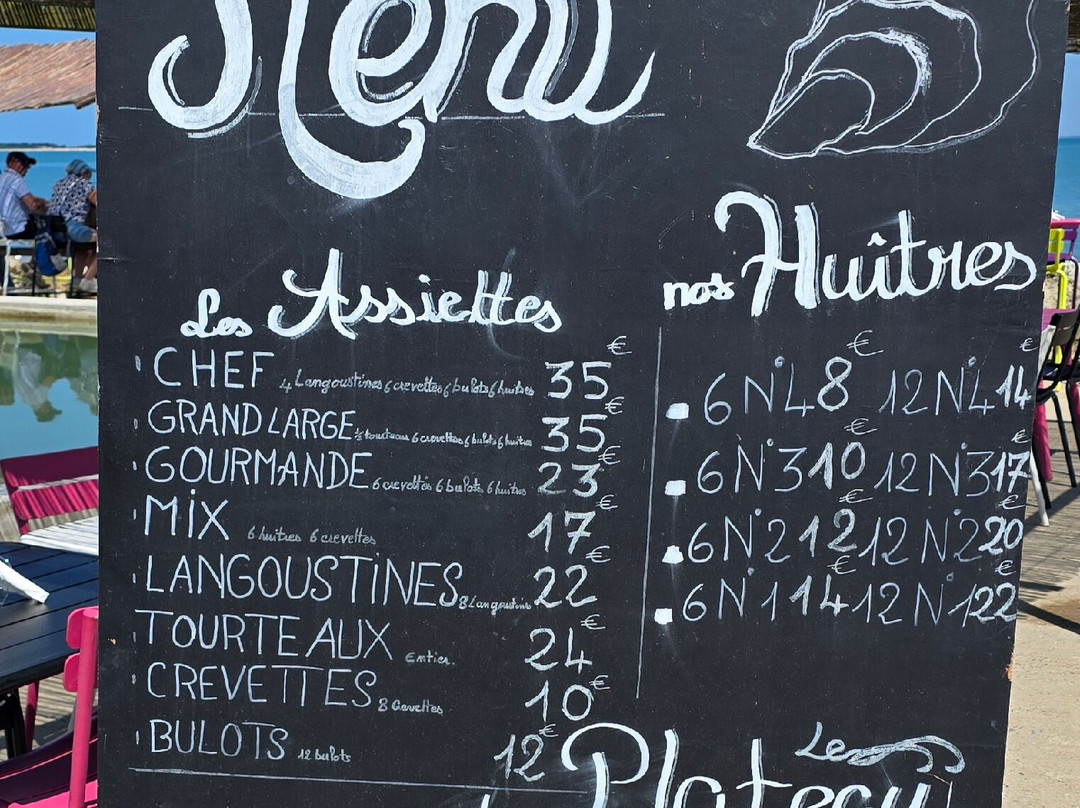 Menu
Les Assiettes
CHEF 4 Langoustines 6 crevettes 6 bulots 6 huitres 35€
GRAND LARGE ½ tourteau 6 crevettes 6 bulots 6 huitres 35€
GOURMANDE 6 crevettes 6 bulots 6 huitres 23€
MIX 6 huitres 6 crevettes 17€
LANGOUSTINES 8 Langoustines 22€
TOURTEAUX Entier. 24€
CREVETTES 8 Crevettes 10€
BULOTS 12 bulots 12€
nos Huîtres
6 N°4 8€ 12 N°4 14€
6 N°3 10€ 12 N°3 17€
6 N°2 12€ 12 N°2 20€
6 N°1 14€ 12 N°1 22€
Les
Plateau